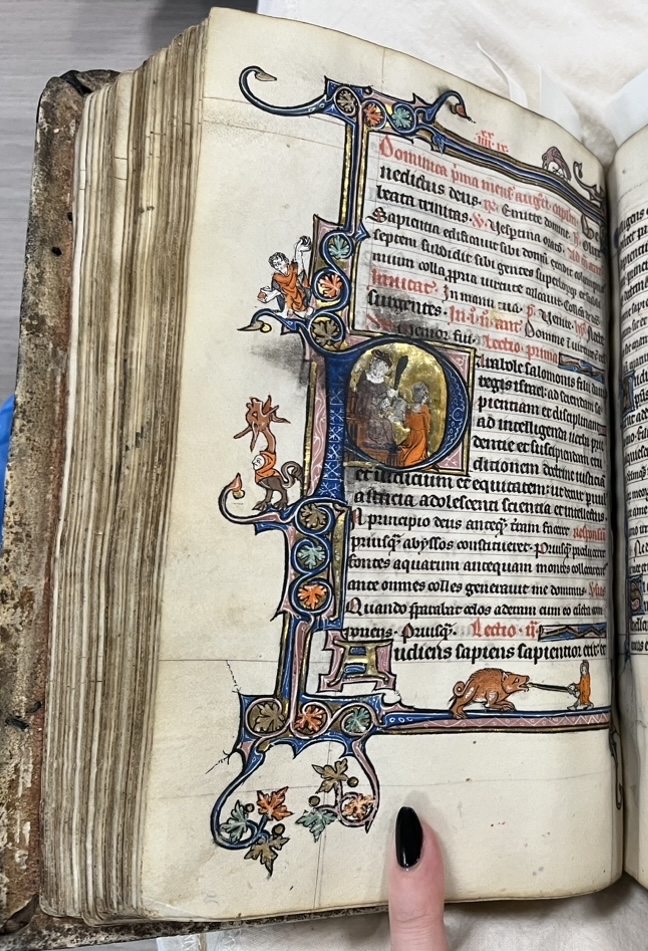 Dominica pma mens' augsti. capim. Be
nedictus deus. R. Emitte domine. P. O lux
beata trinitas. V. Vespertina oratio. Ad
Sapientia edificauit sibi domum excidit columpnas
septem subdidit sibi gentes superborumque et subli
mium colla ppria uirtute calcauit.
Inuitat'. In manu tua. ps. Venite.
surgentes. In. i. n. ant' Domine i uirtute
Memor fui. Lectio prima
Parabole salomonis filii dauid
regis israel: ad sciendam sa
pientiam et disciplinam
ad intelligenda uerba pru
dentie et suscipiendam eru
ditionem doctrine iusticiam
et iudicium et equitatem: ut detur paruul
astucia adolescenti scientia et intellectus.
In principio deus anteq terram faceret responsū
priusq abyssos constitueret. Priusq produceret
fontes aquarum antequam montes collocarent
ante omnes colles generauit me dominus. Versus
Quando preparabat celos aderam cum eo cuncta com
ponens. Priusq. Lectio. ij.
Audiens sapiens sapientior erit: et